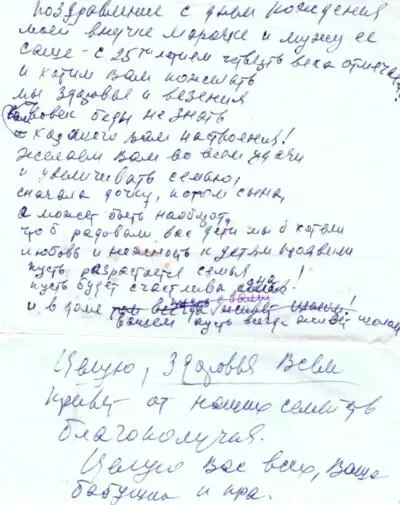 Поздравление с днём рождения
моей внучке Марочке и мужу ее
Саше - с 25ти летием четверть века отмечать
и хотим вам пожелать
мы здоровья и везения
вовек беды не знать
и хорошего вам настроения!
желаем вам во всем удачи
и увеличивать семью,
сначала дочку, потом сына,
а может быть наоборот,
чтоб радовали вас дети мы б хотели
любовь и нежность к детям проявили
пусть разрастается семья !
пусть будет счастлива она
и в доме
вашем пусть всегда
Целую, Здоровья Всем
Привет от наших семейств
благополучия.
Целую вас всех, ваша
бабушка и пра.